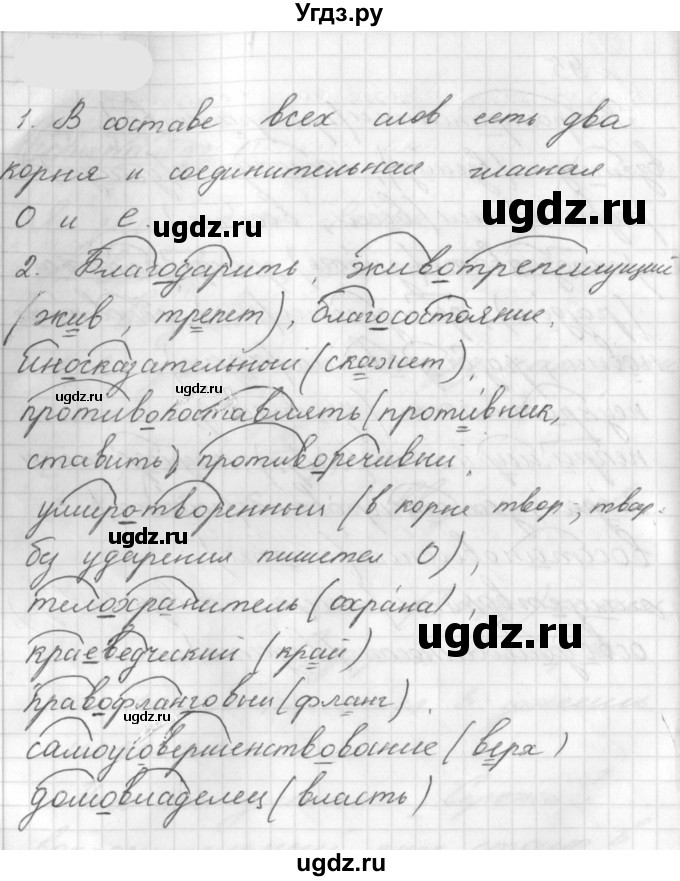 Угдз.ру
1. В составе всех слов есть два
корня и соединительная гласная
О и е.
ugdz.ru
ugdz.ru
2. Благодарить, животрепещущий
(жив, трепет), благосостояние,
ugdz.ru
иносказательный (скажет),
ugdz.ru
противопоставлять (противник,
ставить), противоречивый,
умиротворенный (в корне твор, твар-
без ударения пишется О),
ugdz.ru
телохранитель (охрана),
ugdz.ru
краеведческий (край)
правофланговый (фланг).
ugdz.ru
самоусовершенствование (верх)
домовладелец (власть)
ugdz.ru